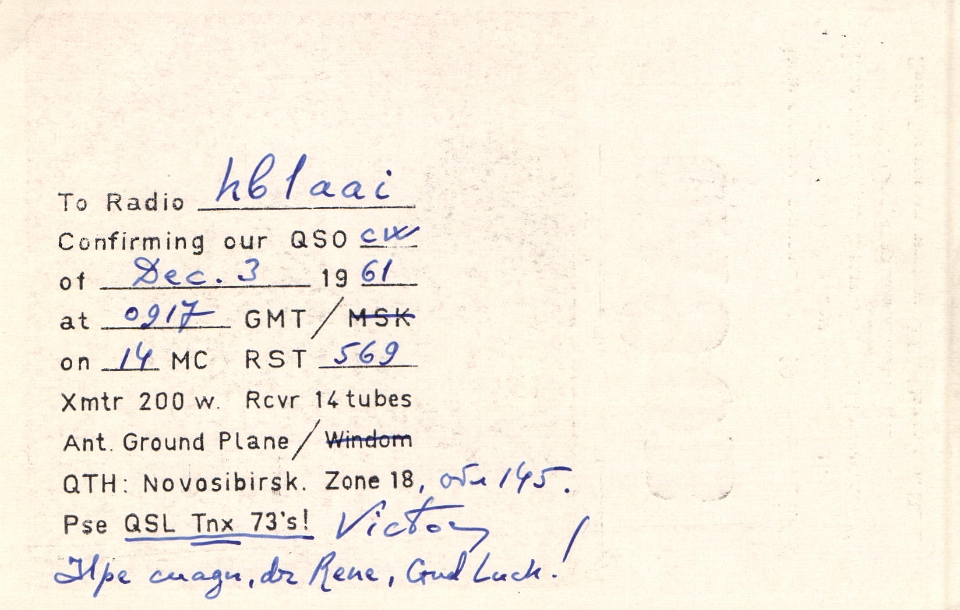 To Radio hb1aai
Confirming our QSO cw
of Dec. 3 1961
at 0917 GMT / MSK
on 14 MC RST 569
Xmtr 200 w. Rcvr 14 tubes
Ant. Ground Plane / Windom
QTH: Novosibirsk. Zone 18, 145.
Pse QSL Tnx 73's! Victor
cuagn, dr Rene, Gud Luck!